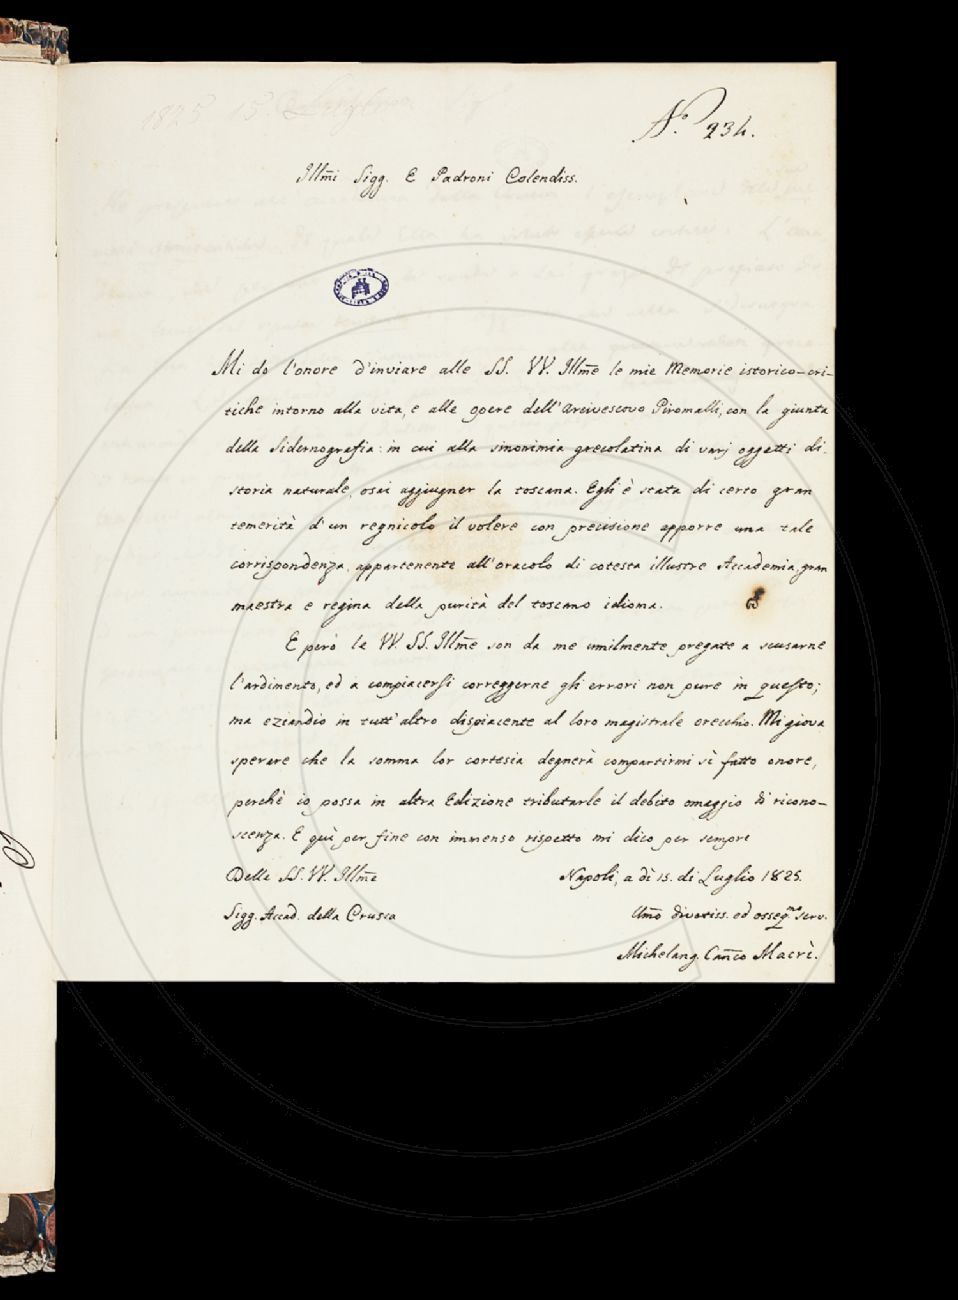 1825 15. Luglio
N.° 234.
Illm̃i Sigg. E Padroni Colendiss.
Mi do l'onore d'inviare alle SS. VV. Illm̃e le mie Memorie istorico-cri-
tiche intorno alla vita, e alle opere dell'Arcivescovo Piromalli, con la giunta
della Sidernografia: in cui alla sinonimia grecolatina di varj oggetti di
storia naturale, osai aggiugner la toscana. Egli è stata di certo gran
temerità d'un regnicolo il volere con precisione apporre una tale
corrispondenza, appartenente all'oracolo di cotesta illustre Accademia, gran
maestra e regina della purità del toscano idioma.
E però le VV. SS. Illm̃e son da me umilmente pregate a scusarne
l'ardimento, ed a compiacersi correggerne gli errori non pure in questo;
ma eziandio in tutt'altro dispiacente al loro magistrale orecchio. Mi giova
sperare che la somma lor cortesia degnerà compartirmi sì fatto onore,
perchè io possa in altra Edizione tributarle il debito omaggio di ricono-
scenza. E quì per fine con immenso rispetto mi dico per sempre
Delle SS. VV. Illm̃e
Napoli, a dì 15. di Luglio 1825.
Sigg. Accad. della Crusca
Um̃o divotiss. ed osseq.mo serv.
Michelang. Can̄co Macrì.